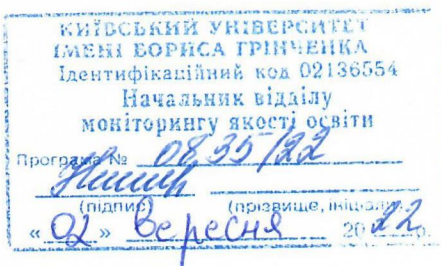 КИЇВСЬКИЙ УНІВЕРСИТЕТ
ІМЕНІ БОРИСА ГРІНЧЕНКА
Ідентифікаційний код 02136554
Начальник відділу
моніторингу якості освіти
Програма № 0835/22
(підпис) (прізвище, ініціали)
« 02 » вересня 2022р.